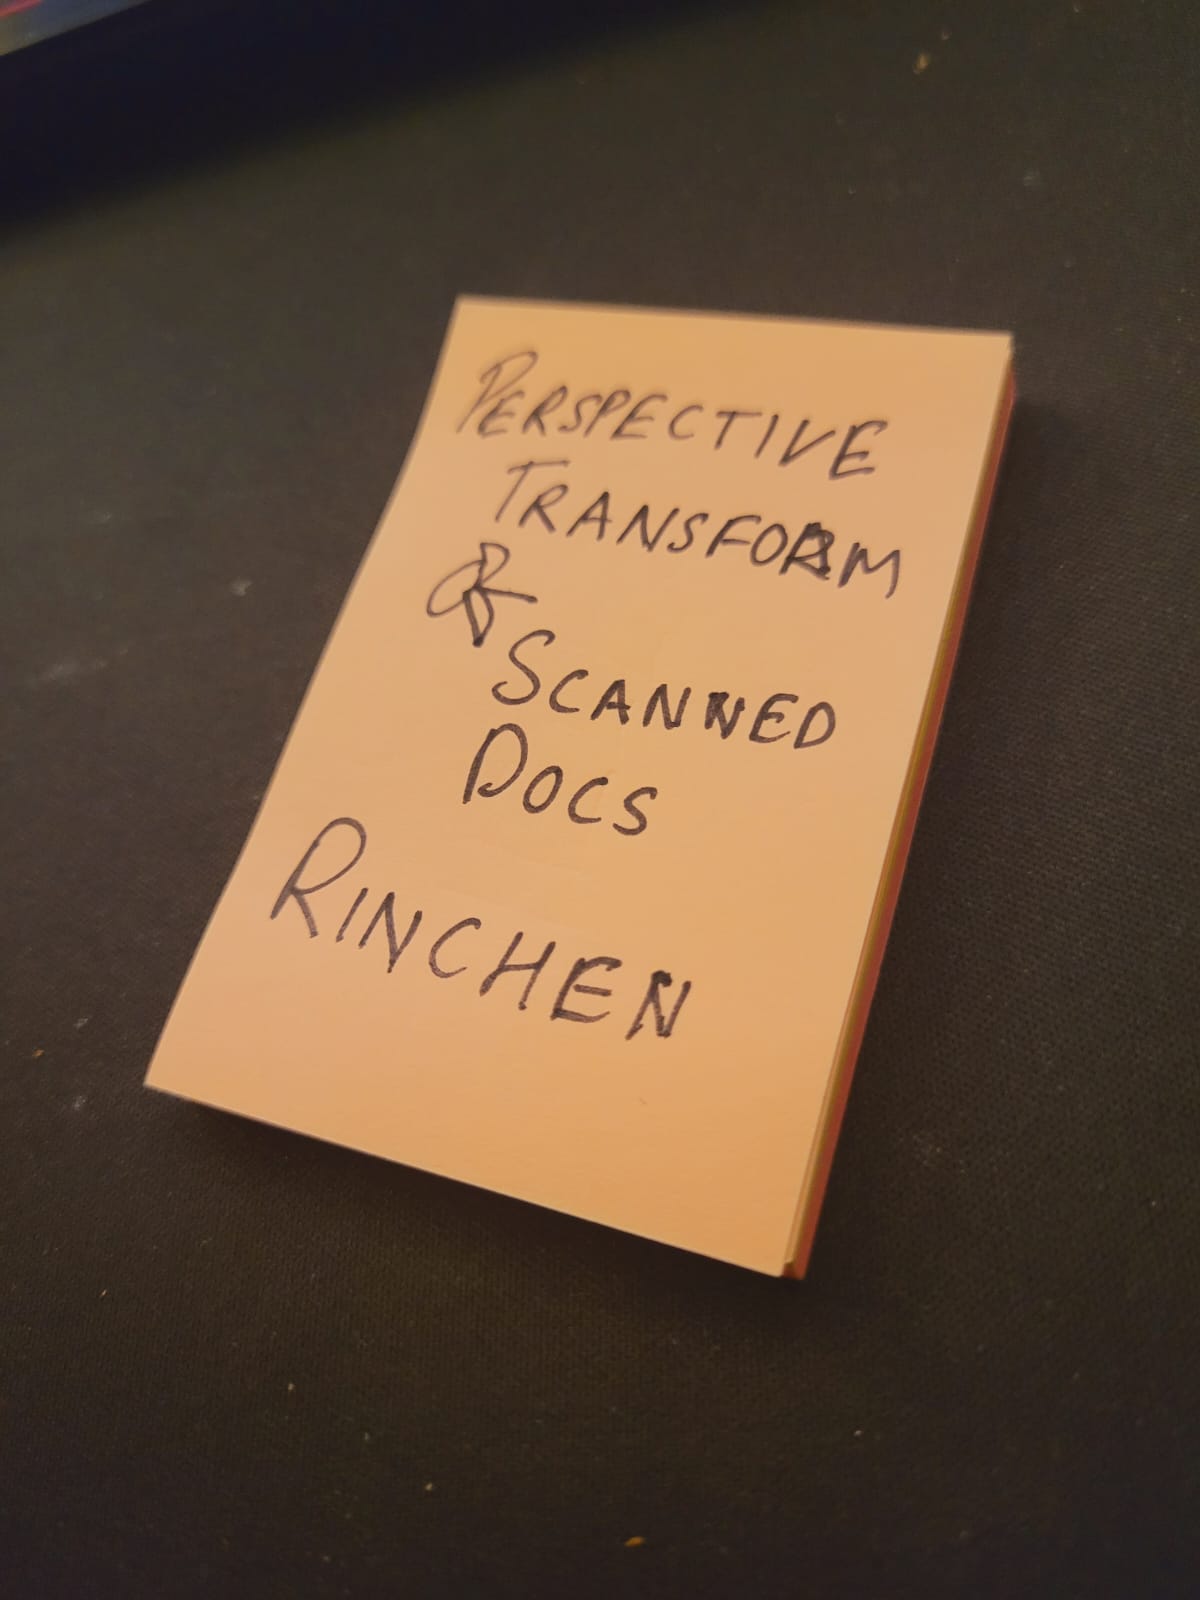 PERSPECTIVE
TRANSFORM
&
SCANNED
DOCS
RINCHEN